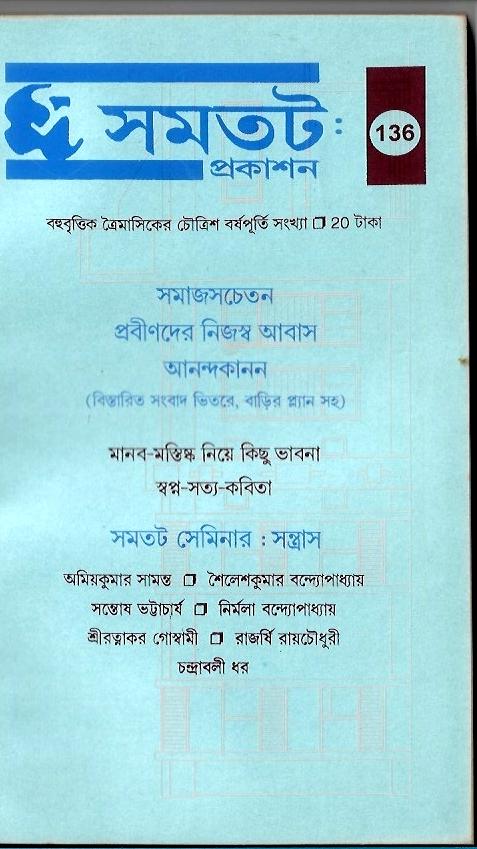 সমতট :
প্রকাশন
136
বহুবৃত্তিক ত্রৈমাসিকের চৌত্রিশ বর্ষপূর্তি সংখ্যা ❐ 20 টাকা
সমাজসচেতন
প্রবীণদের নিজস্ব আবাস
আনন্দকানন
(বিস্তারিত সংবাদ ভিতরে, বাড়ির প্ল্যান সহ)
মানব-মস্তিষ্ক নিয়ে কিছু ভাবনা
স্বপ্ন-সত্য-কবিতা
সমতট সেমিনার : সন্ত্রাস
অমিয়কুমার সামন্ত ❐ শৈলেশকুমার বন্দ্যোপাধ্যায়
সন্তোষ ভট্টাচার্য ❐ নির্মলা বন্দ্যোপাধ্যায়
শ্রীরত্নাকর গোস্বামী ❐ রাজর্ষি রায়চৌধুরী
চন্দ্রাবলী ধর